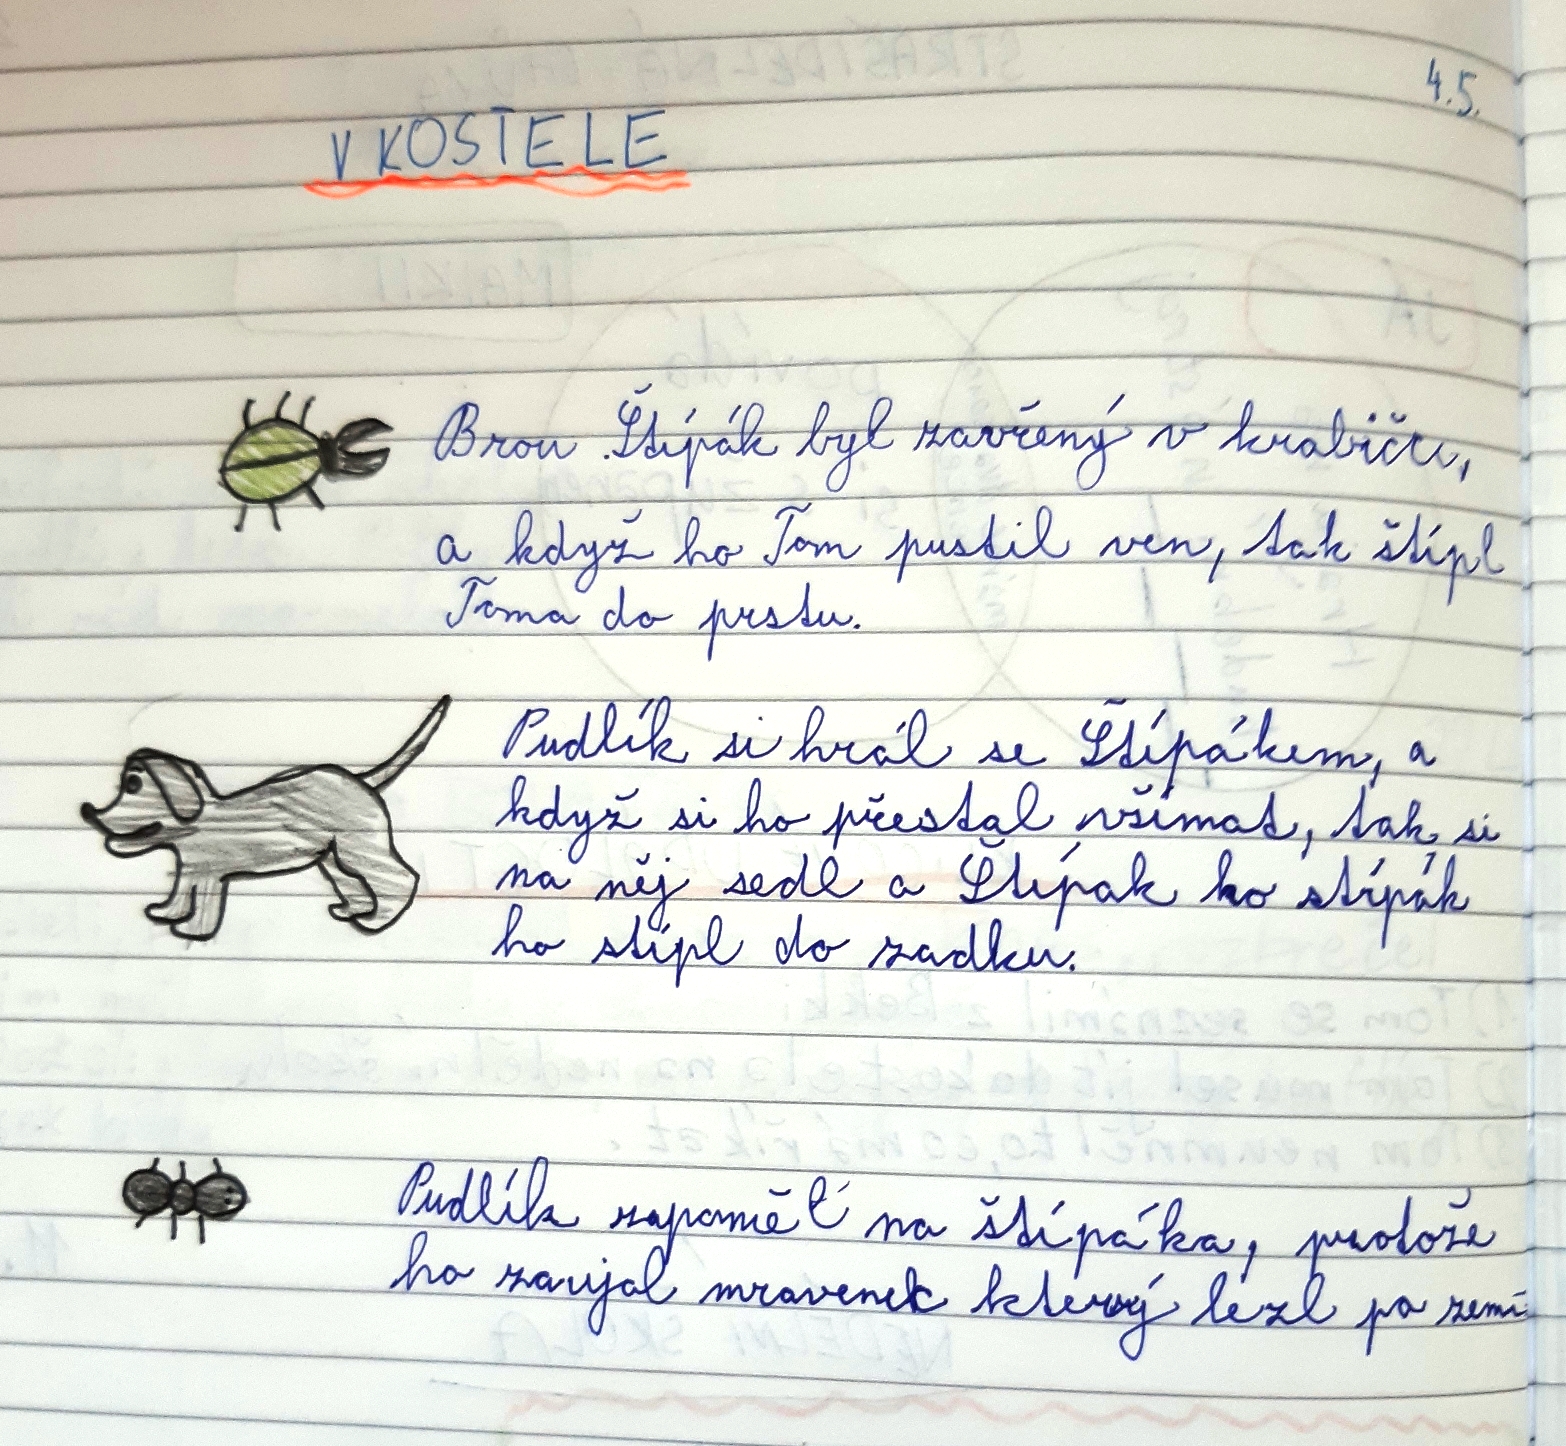 4.5.
V KOSTELE
Brou Štípák byl zavřený v krabičce,
a když ho Tom pustil ven, tak štípl
Toma do prstu.
Pudlík si hrál se Štípákem, a
když si ho přestal všímat, tak si
na něj sedl a Štípak ho stípák
ho stípl do zadku.
Pudlík zapoměl na štípáka, protože
ho zaujal mravenek který lezl po zemi